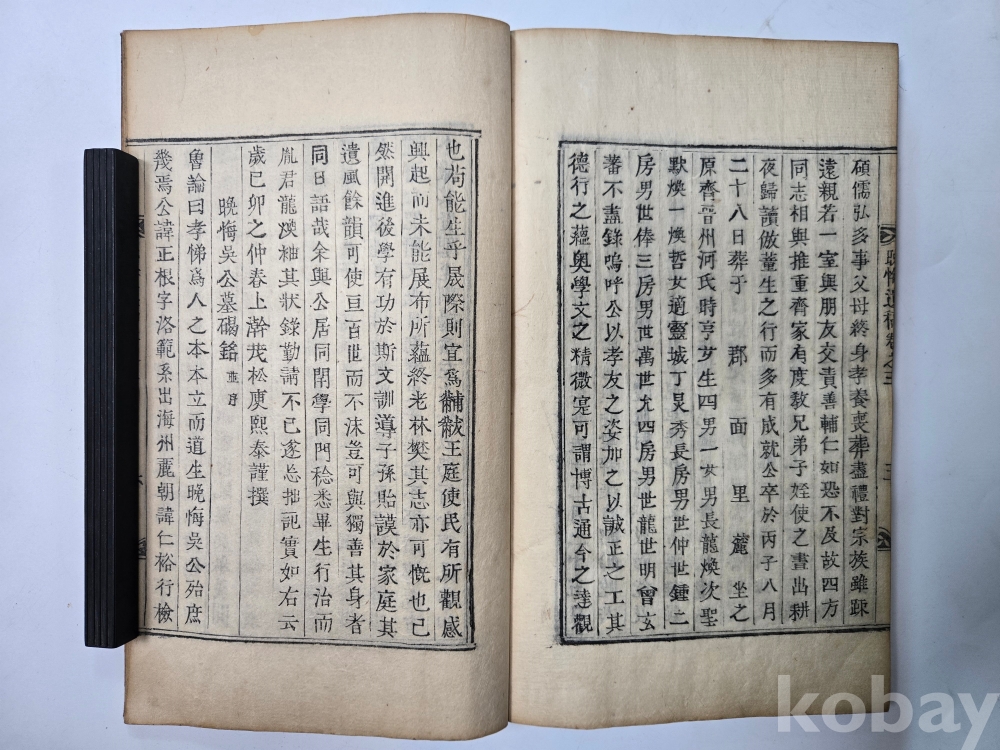 碩儒弘多事父母終身孝養喪葬盡禮對宗族雖疎
遠親若一室與朋友交責善輔仁如恐不及故四方
同志相與推重齊家有度敎兄弟子姪使之晝出耕
夜歸讀倣董生之行而多有成就公卒於丙子八月
二十八日葬于 郡 面 里 麓 坐之
原齊晉州河氏時亨女生四男一女男長龍煥次聖
默煥一煥哲女適靈城丁炅秀長房男世仲世鍾二
房男世俸三房男世萬世允四房男世龍世明曾玄
蕃不盡錄嗚呼公以孝友之姿加之以誠正之工其
德行之蘊奧學文之精微寔可謂博古通今之達觀
晩悔遺稿卷之三
三
也苟能生乎晟際則宜爲黼黻王庭使民有所觀感
興起而未能展布所蘊終老林樊其志亦可慨也已
然開進後學有功於斯文訓導子孫貽謨於家庭其
遺風餘韻可使亘百世而不沫豈可與獨善其身者
同日語哉余與公居同閈學同門稔悉畢生行治而
胤君龍煥袖其狀錄勤請不已遂忘拙記實如右云
歲己卯之仲春上澣茂松庾熙泰謹撰
晩悔吳公墓碣銘 並序
魯論曰孝悌爲人之本本立而道生晩悔吳公殆庶
幾焉公諱正根字洛範系出海州麗朝諱仁裕行檢
kobay